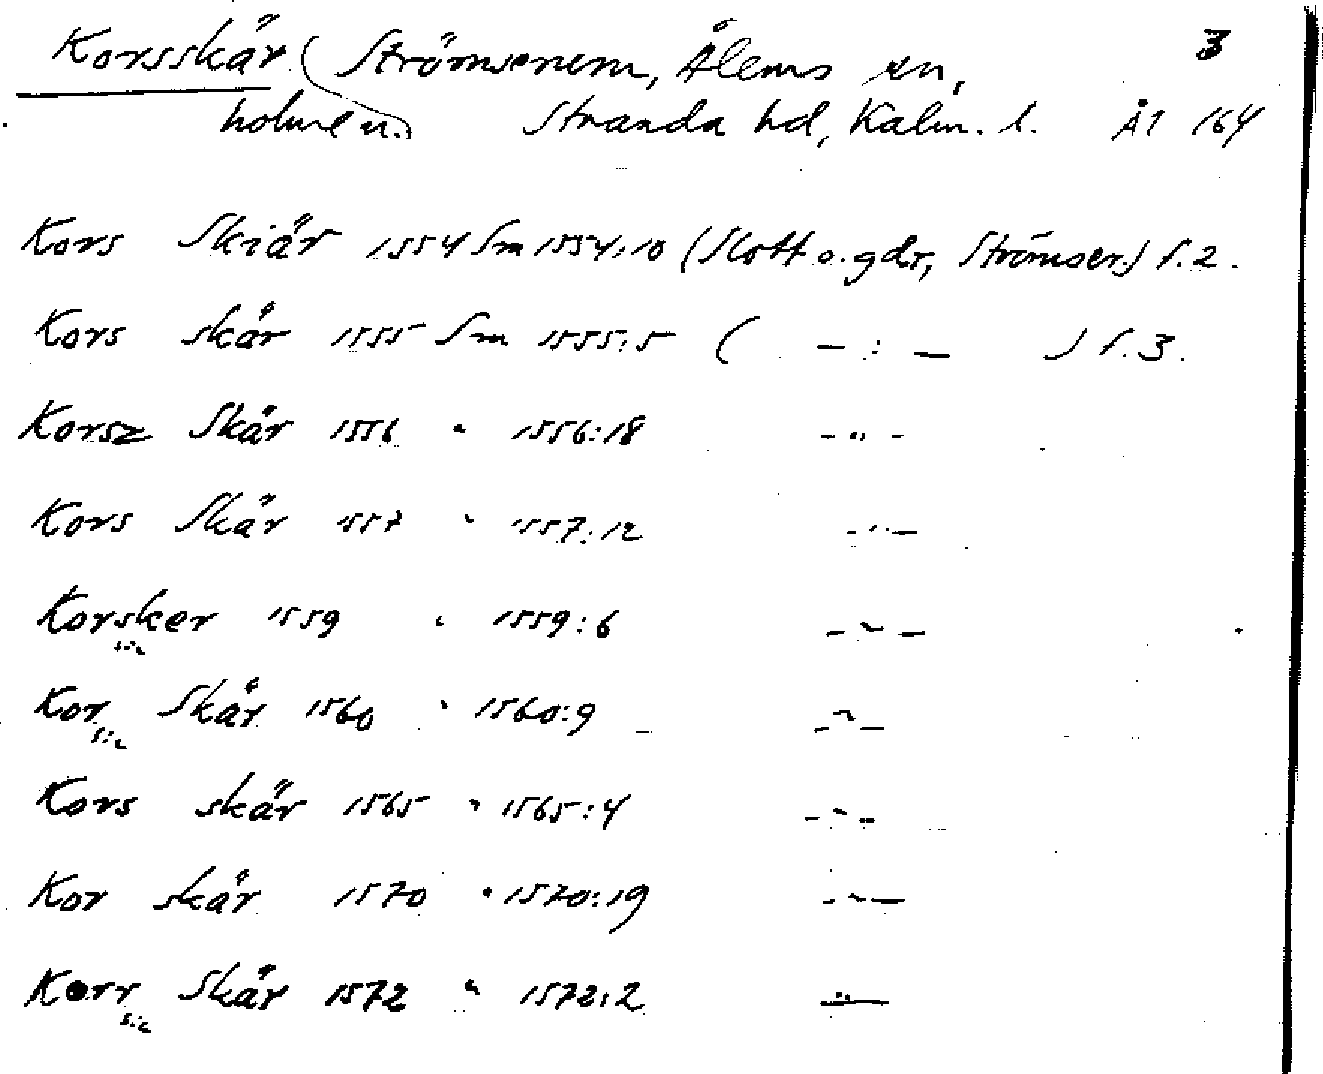 Korsskär (Strömserum, Ålems sn, 3
holmen.) Stranda hd, Kalm. l. ÅT 164
Kors Skiär 1554 Sm 1554:10 (Slott o. gdr, Strömser.) f. 2.
Kors skär 1555 Sm 1555:5 ( — : — ) f. 3.
Korsz Skär 1556 " 1556:18 — " —
Kors Skär 1557 " 1557:12 — " —
Korsker 1559 " 1559:6 — " —
sic
Kor Skär 1560 " 1560:9 — " —
sic
Kors skär 1565 " 1565:4 — " —
Kor skär 1570 " 1570:19 — " —
Korr Skär 1572 " 1572:2 — " —
sic